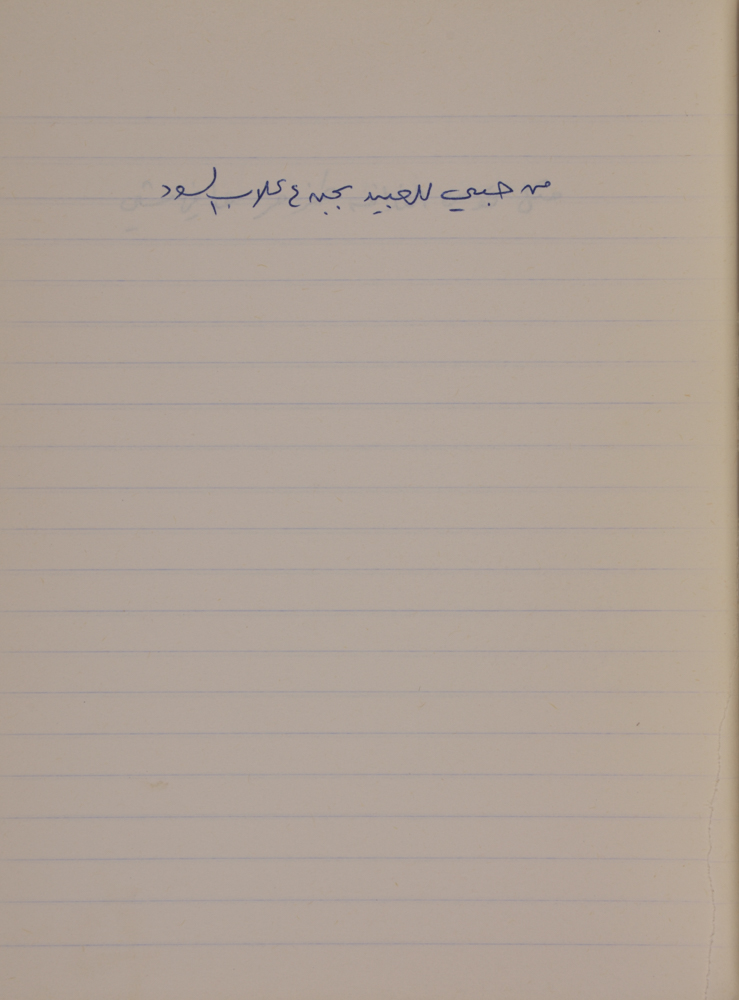 من حبي للعبيد بحب ع كلاب السود